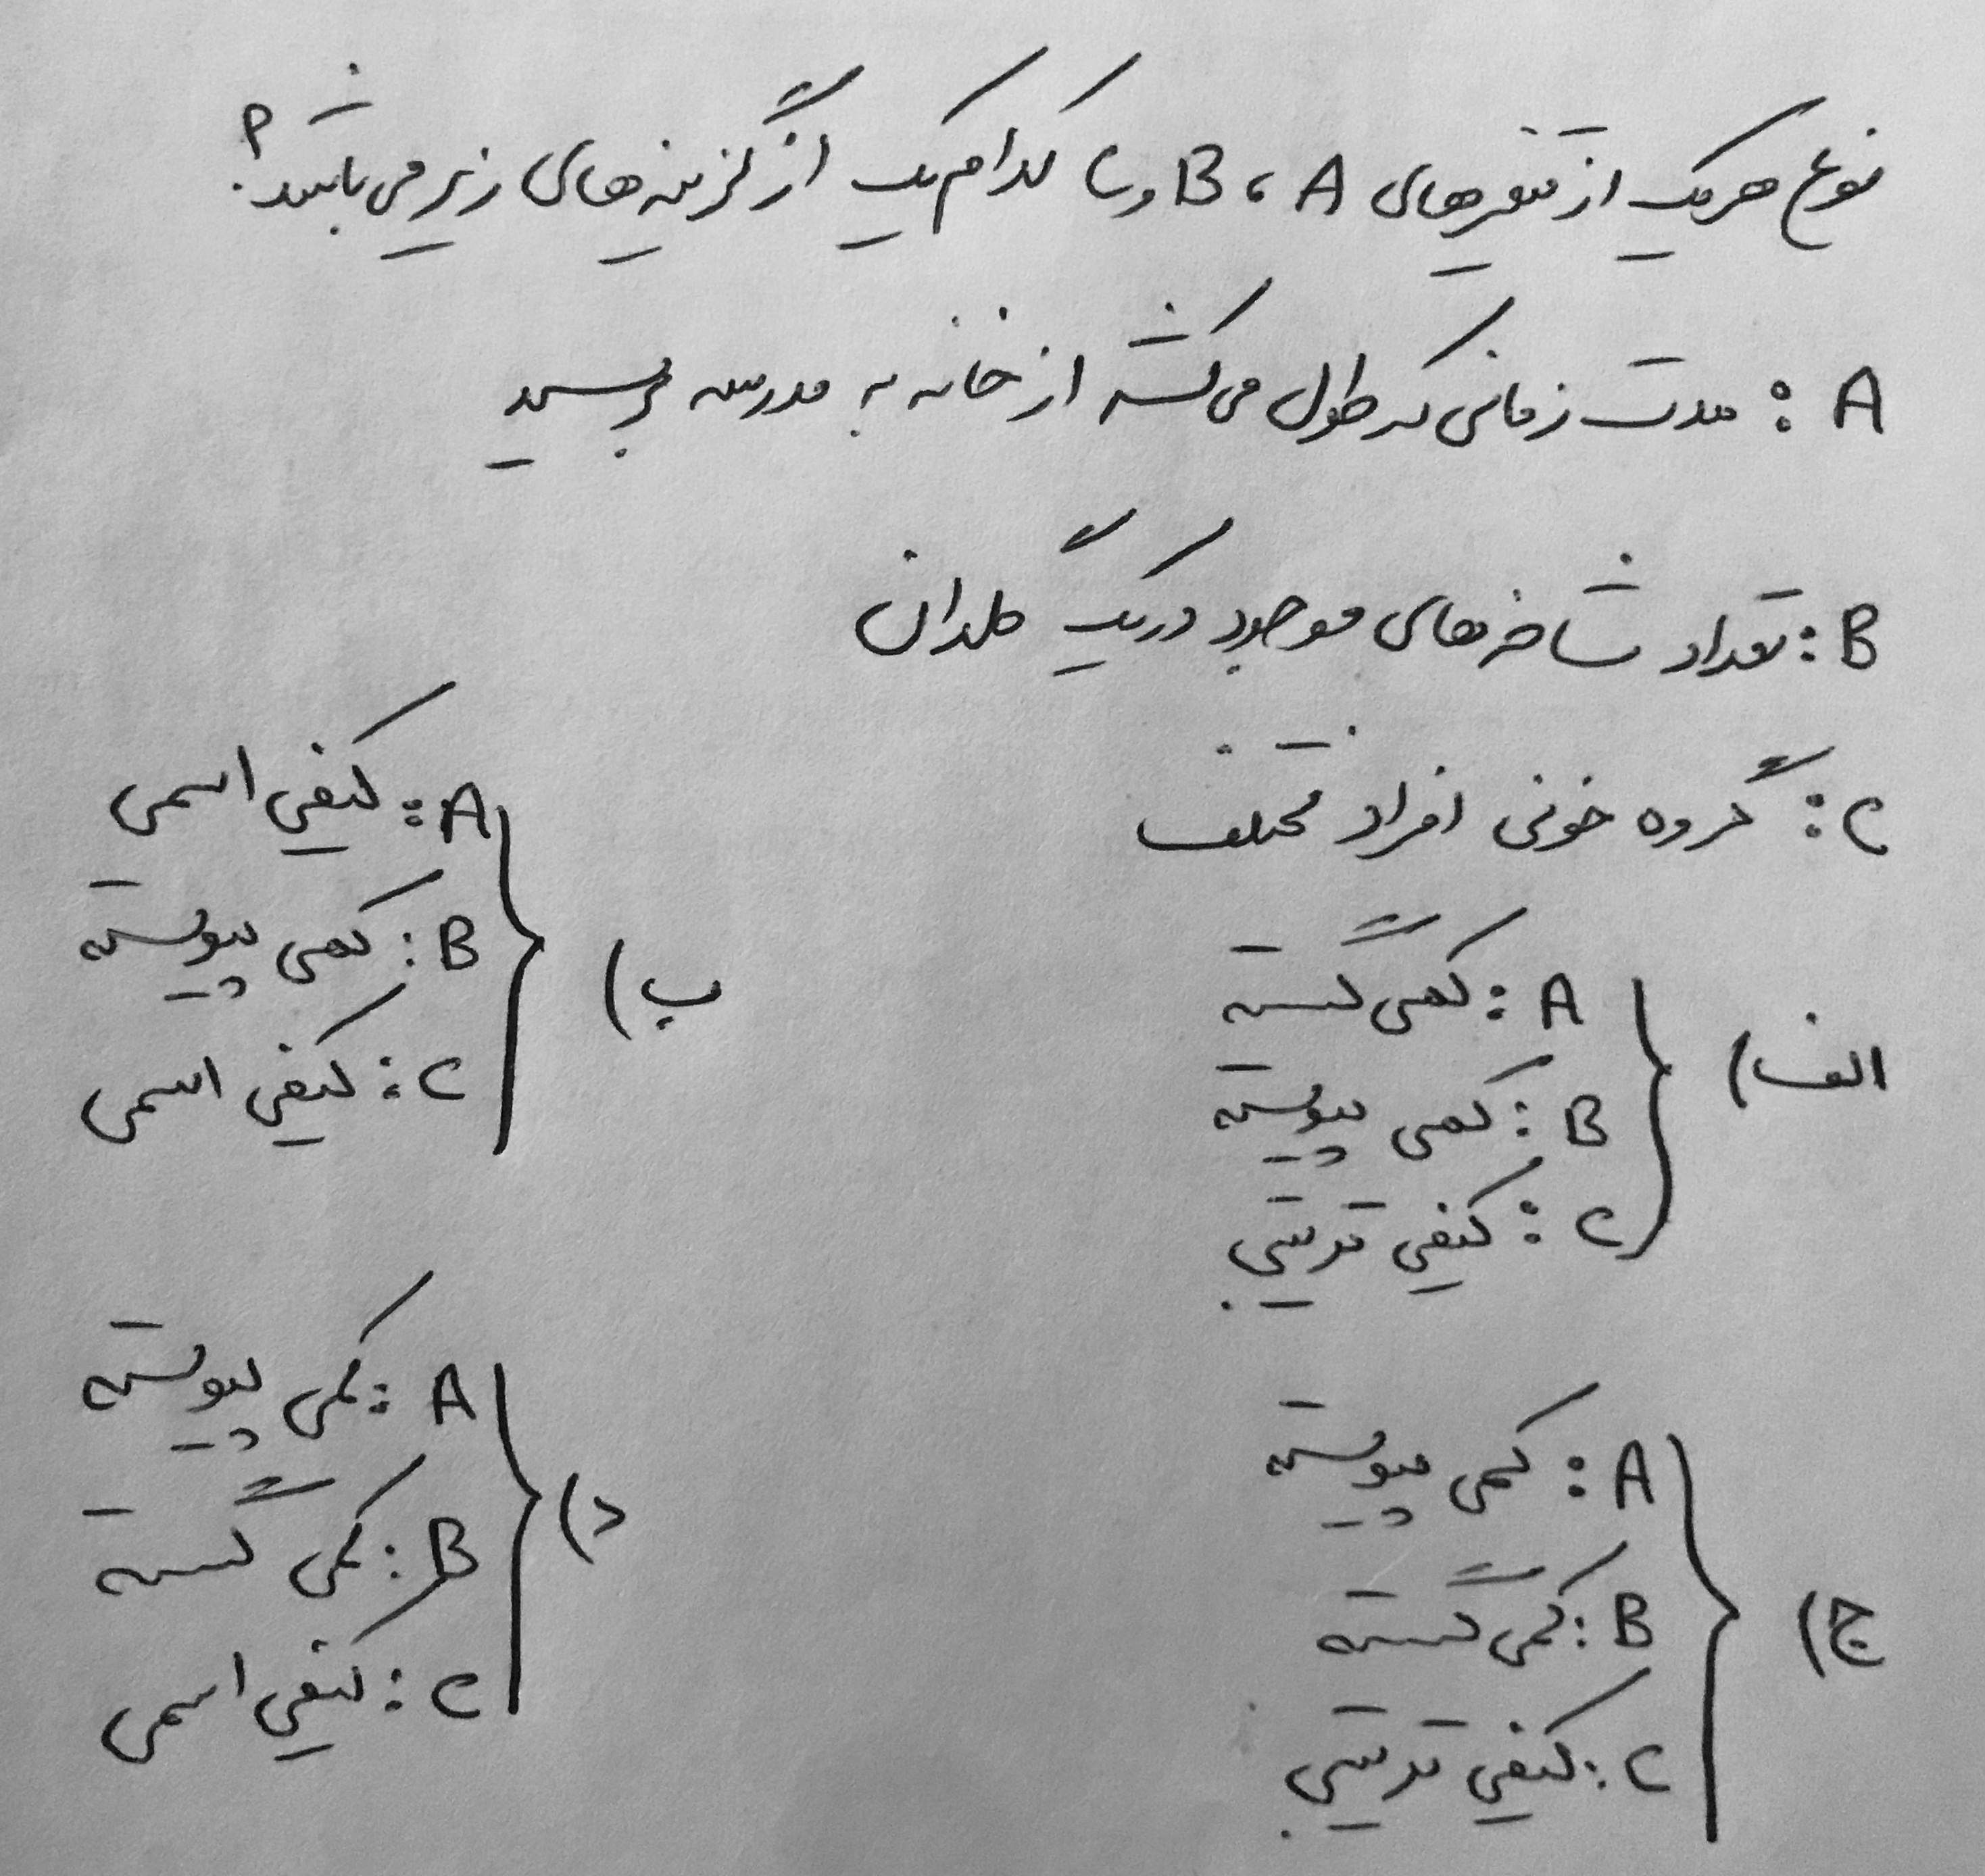 نوع هر یک از متغیرهای A ، B و C کدام یک از گزینه‌های زیر می باشد؟
A : مدت زمانی که طول می کشد از خانه به مدرسه برسید
B : تعداد شاخه‌های موجود در یک گلدان
C : گروه خونی افراد مختلف
الف)
A : کمی گسسته
B : کمی پیوسته
C : کیفی ترتیبی
ب)
A : کیفی اسمی
B : کمی پیوسته
C : کیفی اسمی
ج)
A : کمی پیوسته
B : کمی گسسته
C : کیفی ترتیبی
د)
A : کمی پیوسته
B : کمی گسسته
C : کیفی اسمی